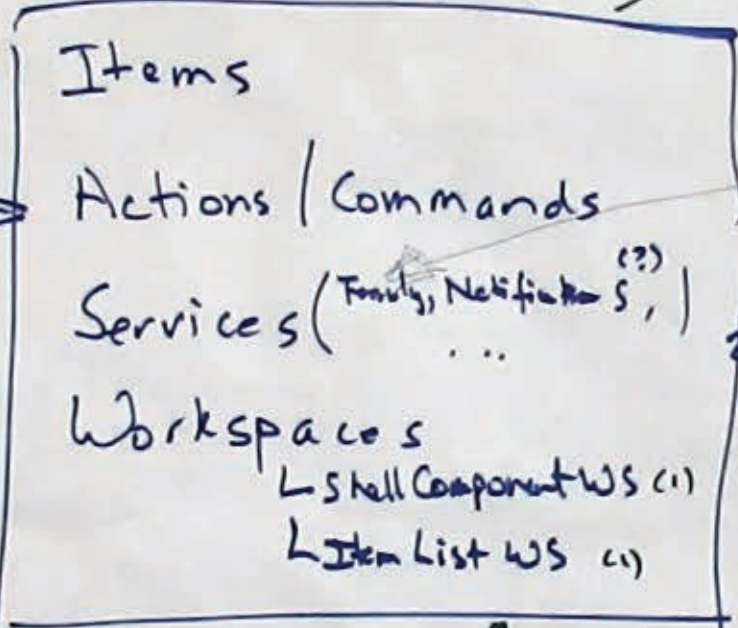 Items
Actions | Commands
(?)
Services ( Family, Notifications, )
...
Workspaces
ShellComponentWS (1)
ItemListWS (1)